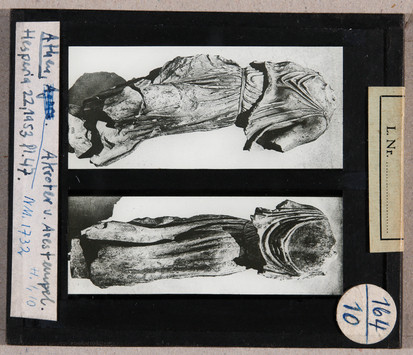 Athen. Akroter v. Arestempel.
Hesperia 22, 1953 Pl. 47. NM. 1732
L. Nr.
164
10